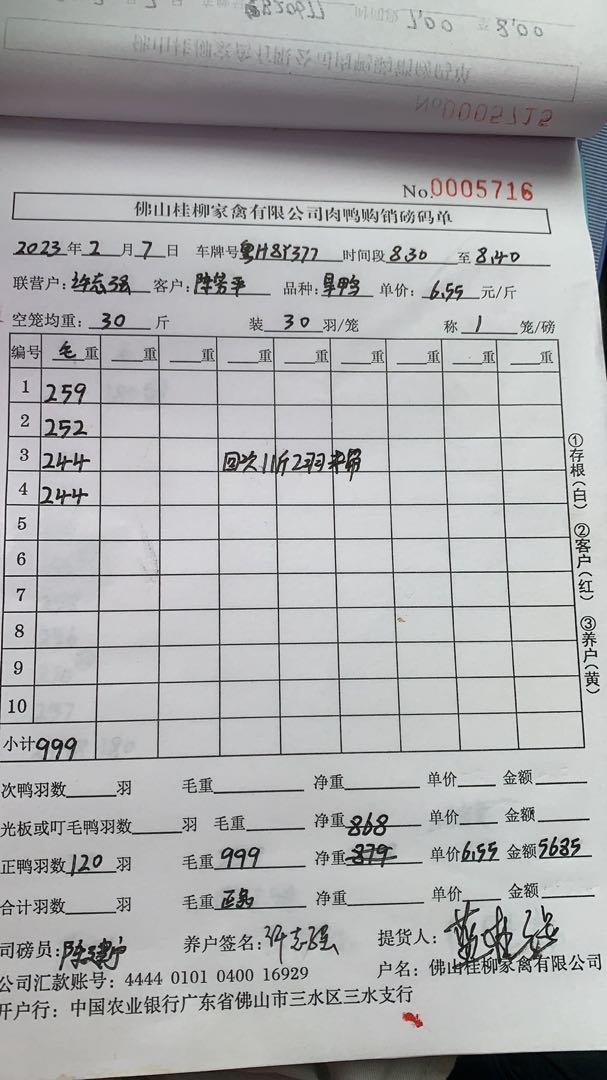 8,00
7,00
No0005715
No.0005716
佛山桂柳家禽有限公司肉鸭购销磅码单
2023年2月7日 车牌号粤H8Y377 时间段8.30至8.40
联营户:许志强 客户:陈芳平 品种: 单价:6.55元/斤
空笼均重:30斤 装30羽/笼 称1笼/磅
编号 毛重 重 重 重 重 重 重 重
1 259
2 252
3 244 回次11斤2羽
4 244
5
6
7
8
9
10
小计 999
①存根(白) ②客户(红) ③养户(黄)
次鸭羽数 羽 毛重 净重 单价 金额
光板或叮毛鸭羽数 羽 毛重 净重868 单价 金额
正鸭羽数120羽 毛重999 净重879 单价6.55 金额5685
合计羽数 羽 毛重 净重 单价 金额
司磅员: 养户签名:许志强 提货人:
公司汇款账号:4444 0101 0400 16929 户名:佛山桂柳家禽有限公司
开户行:中国农业银行广东省佛山市三水区三水支行